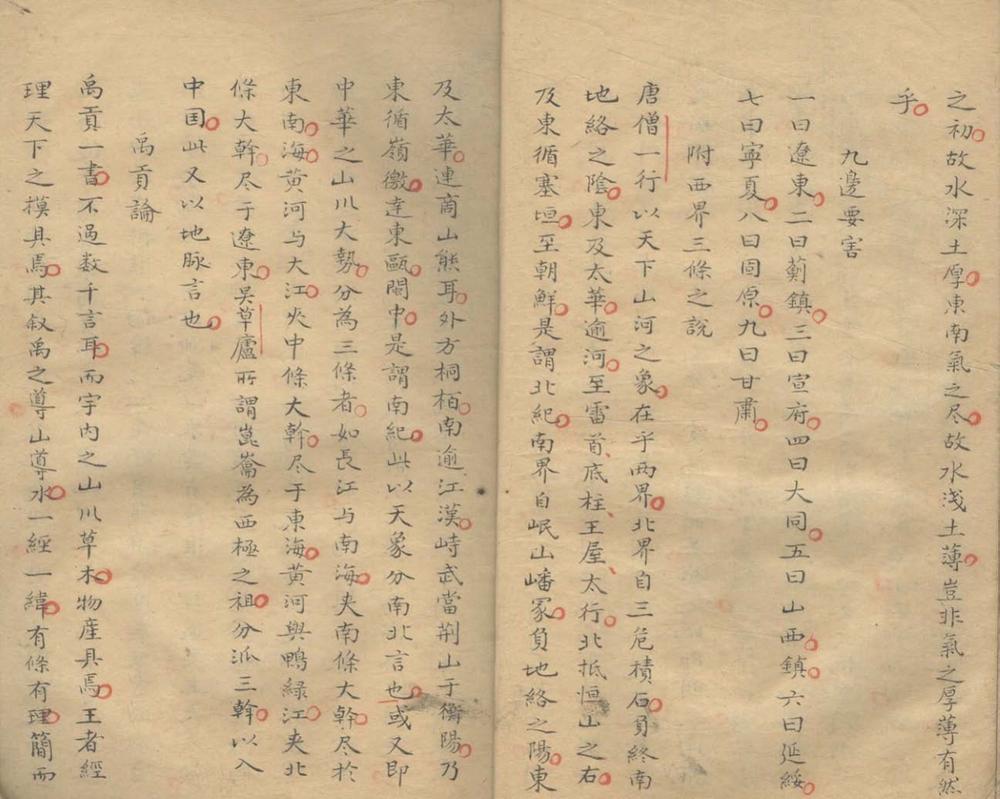 之初故水深土厚東南氣之尽故水浅土薄豈非氣之厚薄有然
乎
九邊要害
一曰遼東二曰薊鎮三曰宣府四曰大同五曰山西鎮六曰延綏
七曰寧夏八曰固原九曰甘肅
附西界三條之說
唐僧一行以天下山河之象在乎两界北界自三危積石負終南
地絡之陰東及太華逾河至雷首底柱王屋太行北抵恒山之右
及東循塞垣至朝鮮是謂北紀南界自岷山嶓冢負地絡之陽東
及太華連商山熊耳外方桐栢南逾江漢峙武當荆山于衡陽乃
東循嶺徼達東甌閩中是謂南紀此以天象分南北言也或又即
中華之山川大勢分為三條者如長江与南海夹南條大幹尽於
東南海黄河与大江夾中條大幹尽于東海黄河與鴨緑江夹北
條大幹尽于遼東吴草廬所謂崑崙為西極之祖分派三幹以入
中囯此又以地脉言也
禹貢論
禹貢一書不過数千言耳而宇内之山川草木物産具焉王者經
理天下之模具焉其叙禹之導山導水一經一緯有條有理簡而